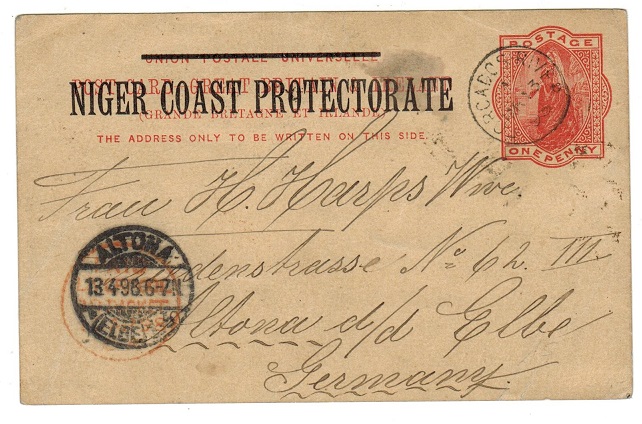 UNION POSTALE UNIVERSELLE
POST CARD GREAT BRITAIN & IRELAND
NIGER COAST PROTECTORATE
(GRANDE BRETAGNE ET IRLANDE)
THE ADDRESS ONLY TO BE WRITTEN ON THIS SIDE.
POSTAGE
ONE PENNY
FORCADOS RIVER
Frau H. Harps Wwe.
Lindenstrasse No 62. III.
Altona d/d Elbe
Germany.
ALTONA
13.4.98.6-7N
(ELBE)